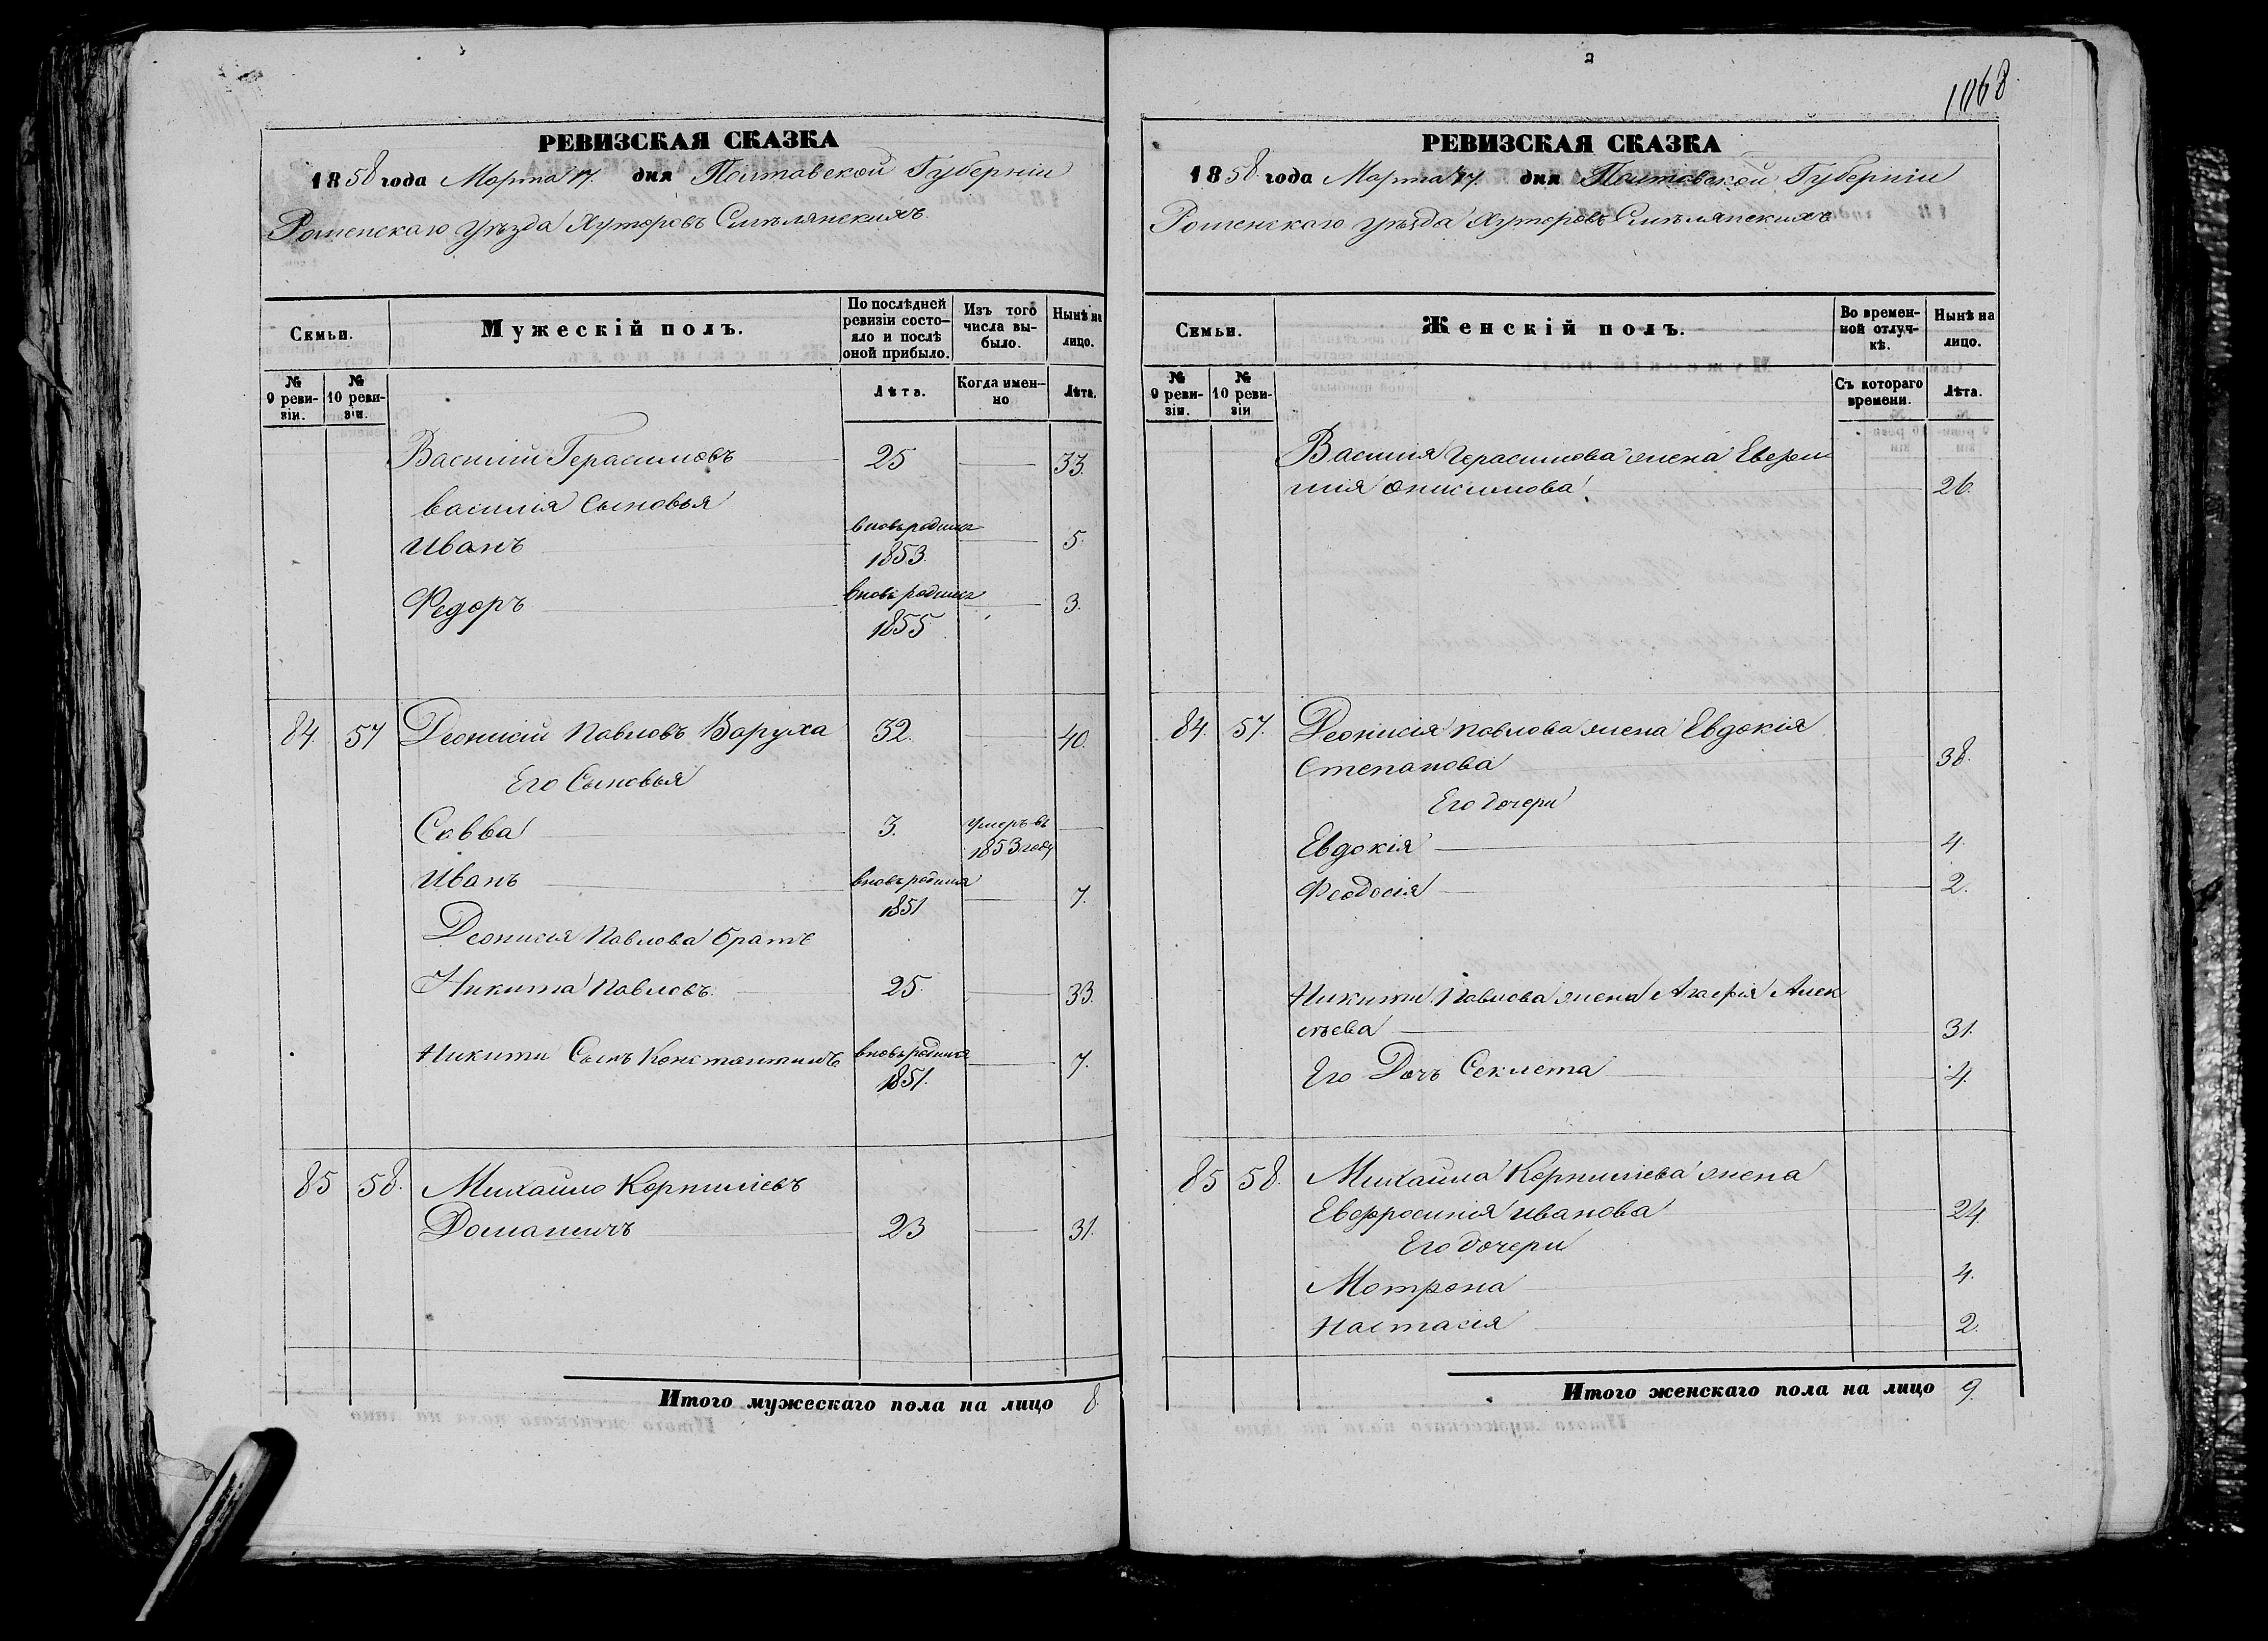 1068.
РЕВИЗСКАЯ СКАЗКА
1858 года Марта 17. дня Полтавской Губерніи
Роменскаго уѣзда Хуторовъ Смѣлянскихъ.
Семьи.
Мужескій полъ.
По послѣдней ревизіи состояло и послѣ оной прибыло.
Изъ того числа выбыло.
Нынѣ на лицо.
№ 9 ревизіи.
№ 10 ревизіи.
Лѣта.
Когда именно
Лѣта.
Василій Герасимовъ 25 33.
Василія Сыновья
Иванъ вновь родился 1853. 5.
Федоръ вновь родился 1855. 3.
84. 57 Деонисій Павловъ Варуха 32. 40.
Его Сыновья
Савва 3. умеръ въ 1853 году
Иванъ вновь родился 1851 7.
Деонисія Павлова братъ
Никита Павловъ. 25. 33.
Никиты Сынъ Константинъ вновь родился 1851. 7.
85 58. Михайло Корниліевъ
Доманичъ 23 31.
Итого мужескаго пола на лицо 8.
РЕВИЗСКАЯ СКАЗКА
1858. года Марта 17 дня Полтавской Губерніи
Роменскаго уѣзда Хуторовъ Смѣлянскихъ
Семьи.
Женскій полъ.
Во временной отлучкѣ.
Нынѣ на лицо.
№ 9 ревизіи.
№ 10 ревизіи
Съ котораго времени.
Лѣта.
Василія Герасимова жена Евфи
мія Онисимова 26.
84. 57. Деонисія Павлова жена Евдокія
Степанова 38.
Его дочери
Евдокія 4.
Феодосія 2.
Никиты Павлова жена Агафія Алек
сѣева 31.
Его Дочь Секлета 4.
85 58. Михайла Корниліева жена
Евфросинія Иванова 24.
Его дочери
Мотрона 4.
Настасія 2.
Итого женскаго пола на лицо 9.